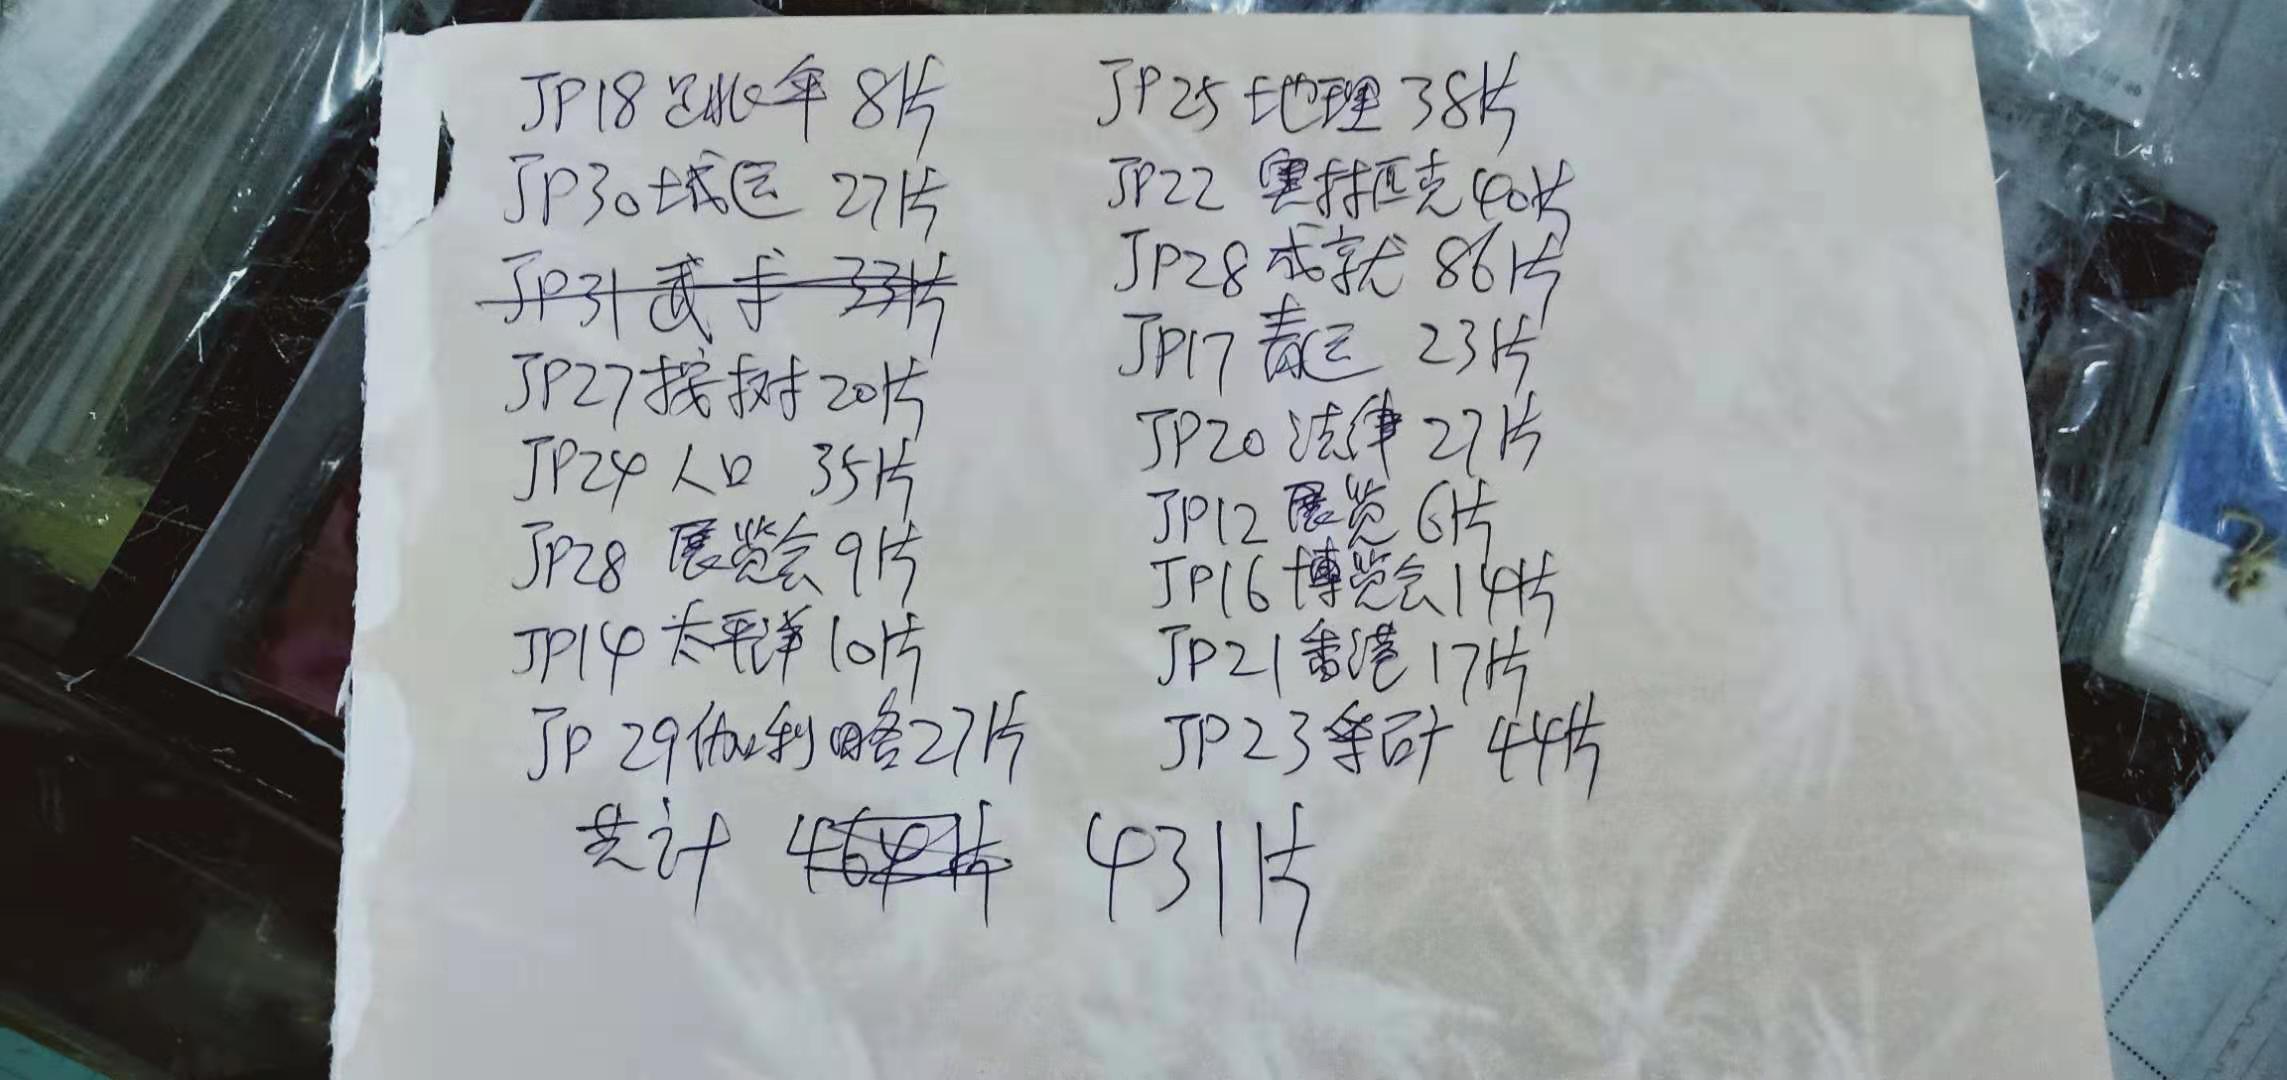 JP18 年 8片
JP30 城运 27片
JP31 武术 33片
JP27 桉树 20片
JP24 人口 35片
JP28 展览会 9片
JP14 太平洋 10片
JP 29 伽利略 27片
JP25 地理 38片
JP22 奥林匹克 40片
JP28 成就 86片
JP17 青运 23片
JP20 法律 27片
JP12 展览 6片
JP16 博览会 14片
JP21 香港 17片
JP23 44片
共计 464片 431片